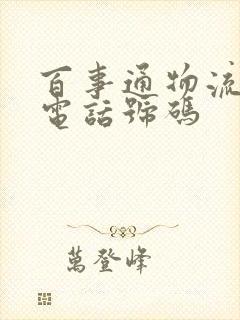 百事通物流
電話號碼
萬登峰